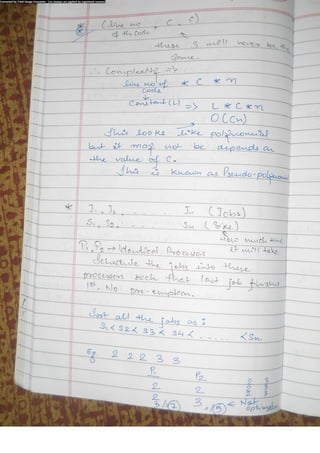 * (line no, C, i)
of the code
these 3 will never be the
same.
∴ Complexity =>
line no of code * C * n
Constant (L) => L * C * n
O(Cn)
This looks like polynomial
but it may not be depends on
the value of C.
This is known as Pseudo-polynomial
* J1, J2, ...... Jn (Jobs)
S1, S2, ...... Sn (Size)
how much time
it will take.
P1, P2 → Identical Processor
Schedule the jobs into these
processors such that last job finishes
1st. No pre-emption.
Sort all the jobs as:
S1 < S2 < S3 < S4 < ...... < Sn
Eg. 2 2 2 3 3
P1 P2
2 2
2 3
3/(7) , (5) ← Not
optimal